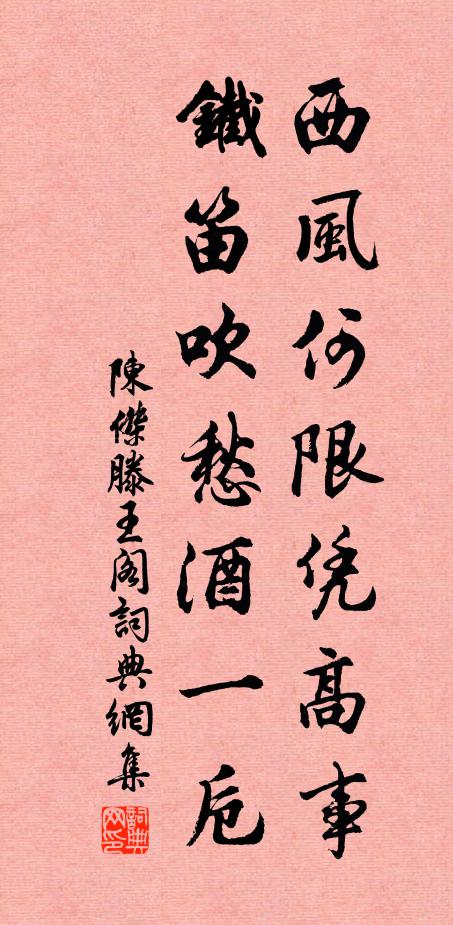 西風何限凭高事
鐵笛吹愁酒一卮
陳傑滕王阁詞典網集
詞典网印